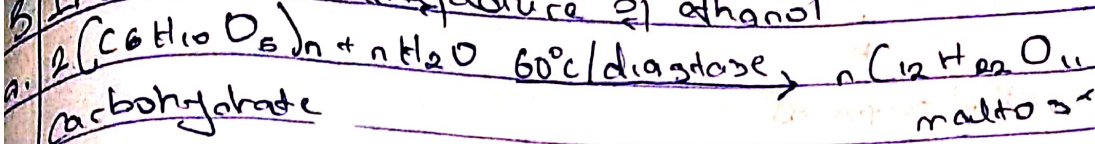 ethanol
a. 2(C6H10O5)n + nH2O 60°c/diastase → n C12H22O11
carbohydrate maltose